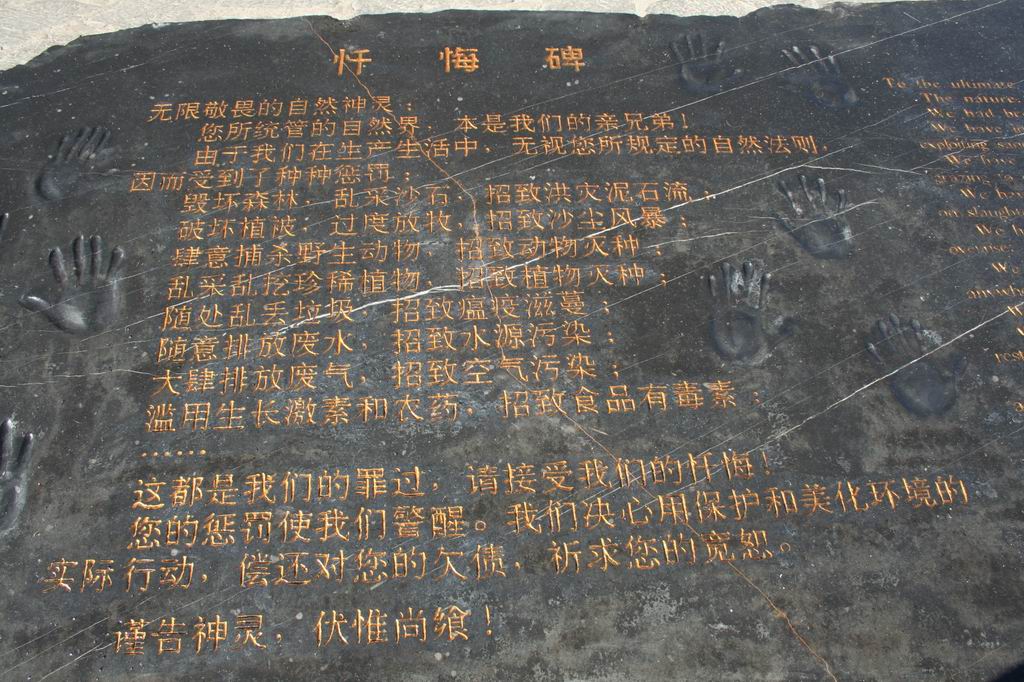 忏悔碑
无限敬畏的自然神灵：
您所统管的自然界，本是我们的亲兄弟！
由于我们在生产生活中，无视您所规定的自然法则，
因而受到了种种惩罚：
毁坏森林，乱采沙石，招致洪灾泥石流；
破坏植被，过度放牧，招致沙尘风暴；
肆意捕杀野生动物，招致动物灭种；
乱采乱挖珍稀植物，招致植物灭种；
随处乱丢垃圾，招致瘟疫滋蔓；
随意排放废水，招致水源污染；
大肆排放废气，招致空气污染；
滥用生长激素和农药，招致食品有毒素；
……
这都是我们的罪过，请接受我们的忏悔！
您的惩罚使我们警醒。我们决心用保护和美化环境的
实际行动，偿还对您的欠债，祈求您的宽恕。
谨告神灵，伏惟尚飨！
To the
The nature.
We had
We have
exploiting
We have
We
on slaught
We
We